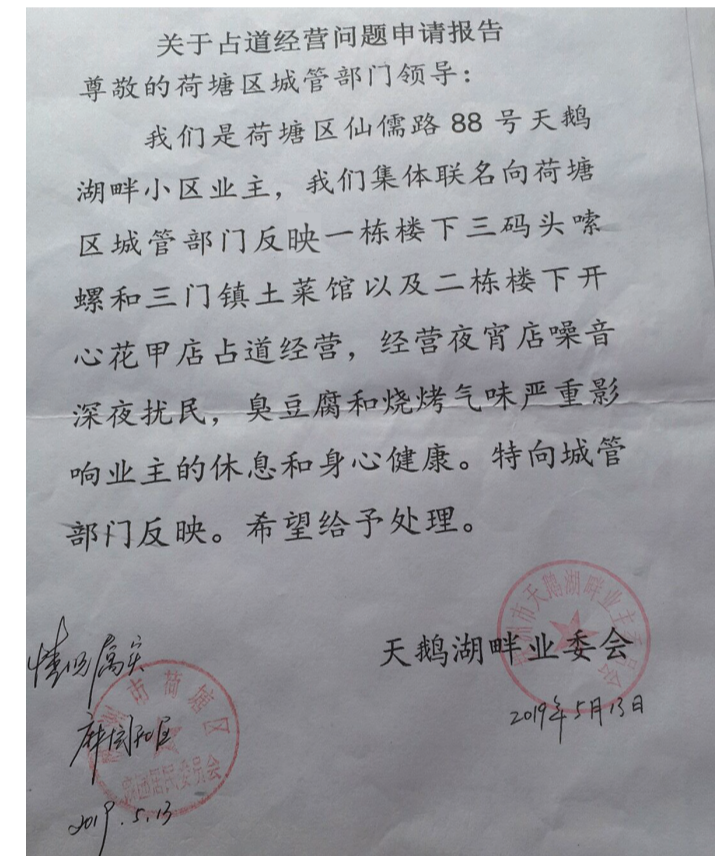 关于占道经营问题申请报告
尊敬的荷塘区城管部门领导：
我们是荷塘区仙儒路 88 号天鹅
湖畔小区业主，我们集体联名向荷塘
区城管部门反映一栋楼下三码头嗦
螺和三门镇土菜馆以及二栋楼下开
心花甲店占道经营，经营夜宵店噪音
深夜扰民，臭豆腐和烧烤气味严重影
响业主的休息和身心健康。特向城管
部门反映。希望给予处理。
天鹅湖畔业委会
2019年5月13日
情况属实
社区
2019.5.13
州市天鹅湖畔业主委员会
州市荷塘区
居民委员会